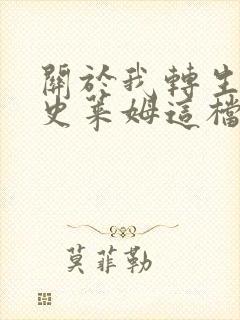 關於我轉生
史萊姆這檔
莫菲勒